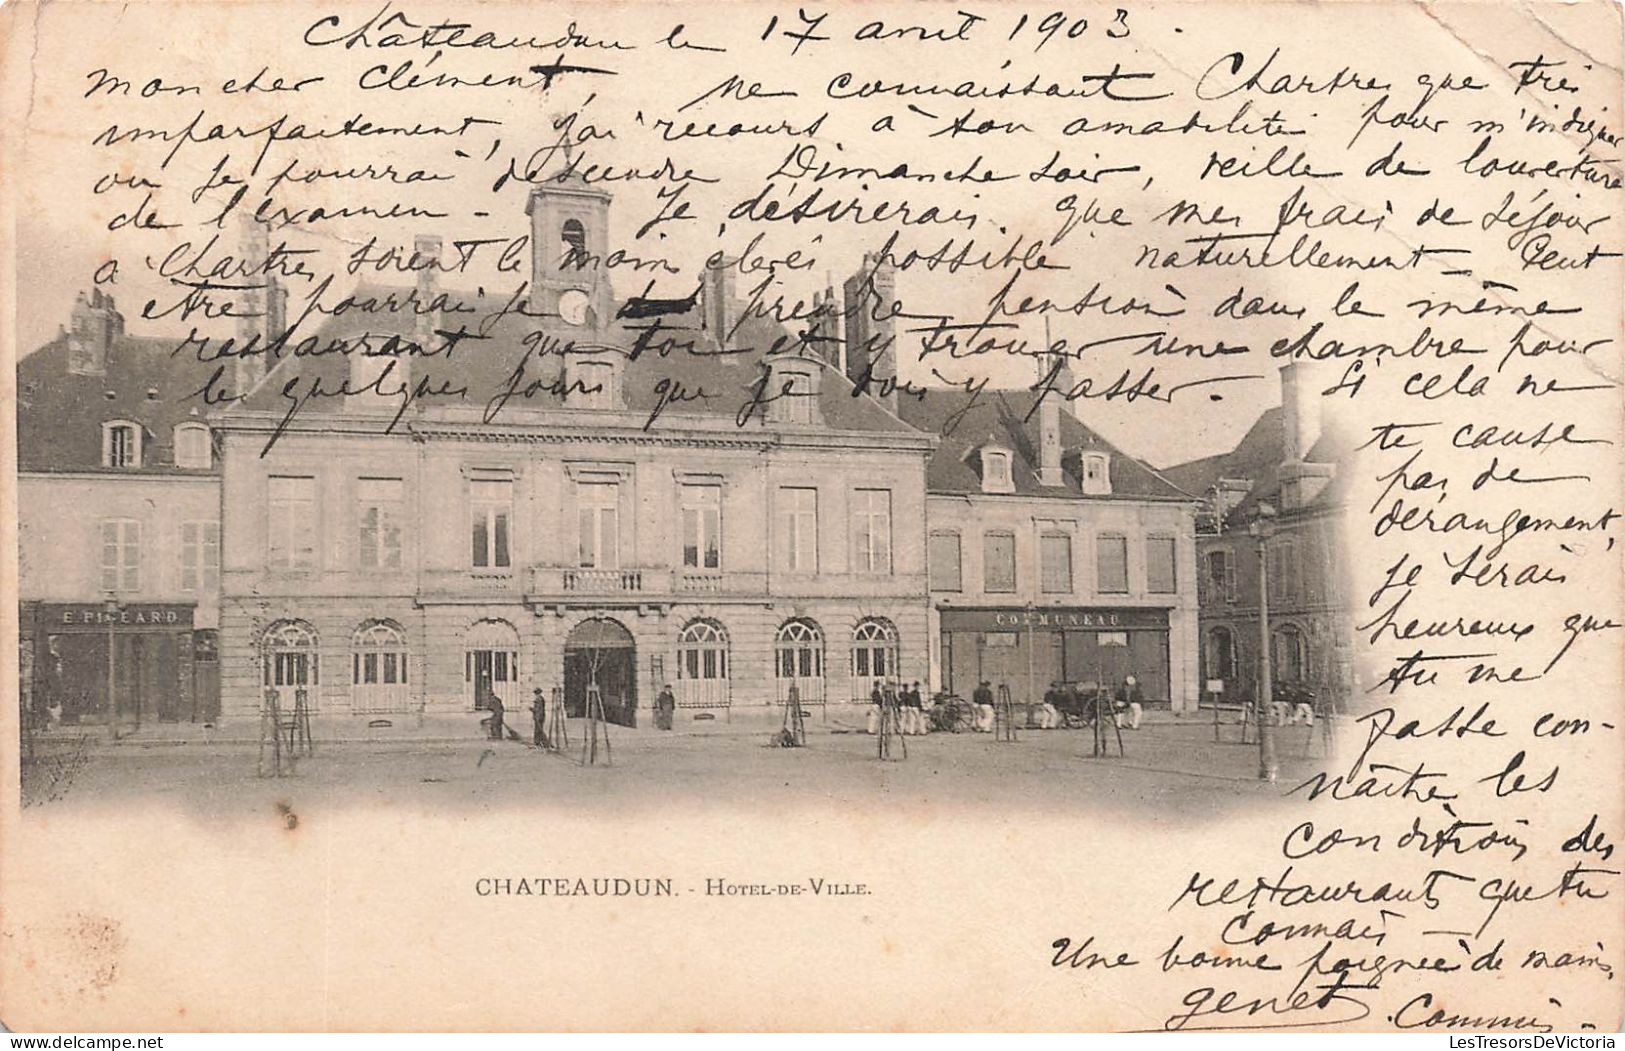 Châteaudun le 17 avril 1903.
mon cher Clément, ne connaissant Chartres que très
imparfaitement, j'ai recours à ton amabilité pour m'indiquer
ou je pourrai descendre Dimanche soir, veille de l'ouverture
de l'examen - Je désirerais que mes frais de séjour
a Chartres soient le moins élevés possible naturellement - Peut
etre pourrai je prendre pension dans le même
restaurant que toi et y trouver une chambre pour
les quelques jours que je dois y passer - Si cela ne
te cause
pas de
dérangement,
je serais
heureux que
tu me
fasse con-
naitre les
conditions des
restaurants que tu
connais -
E. PINEARD
COMMUNEAU
CHATEAUDUN. - HOTEL-DE-VILLE.
Une bonne poignée de mains,
genet. Commis -
LesTresorsDeVictoria